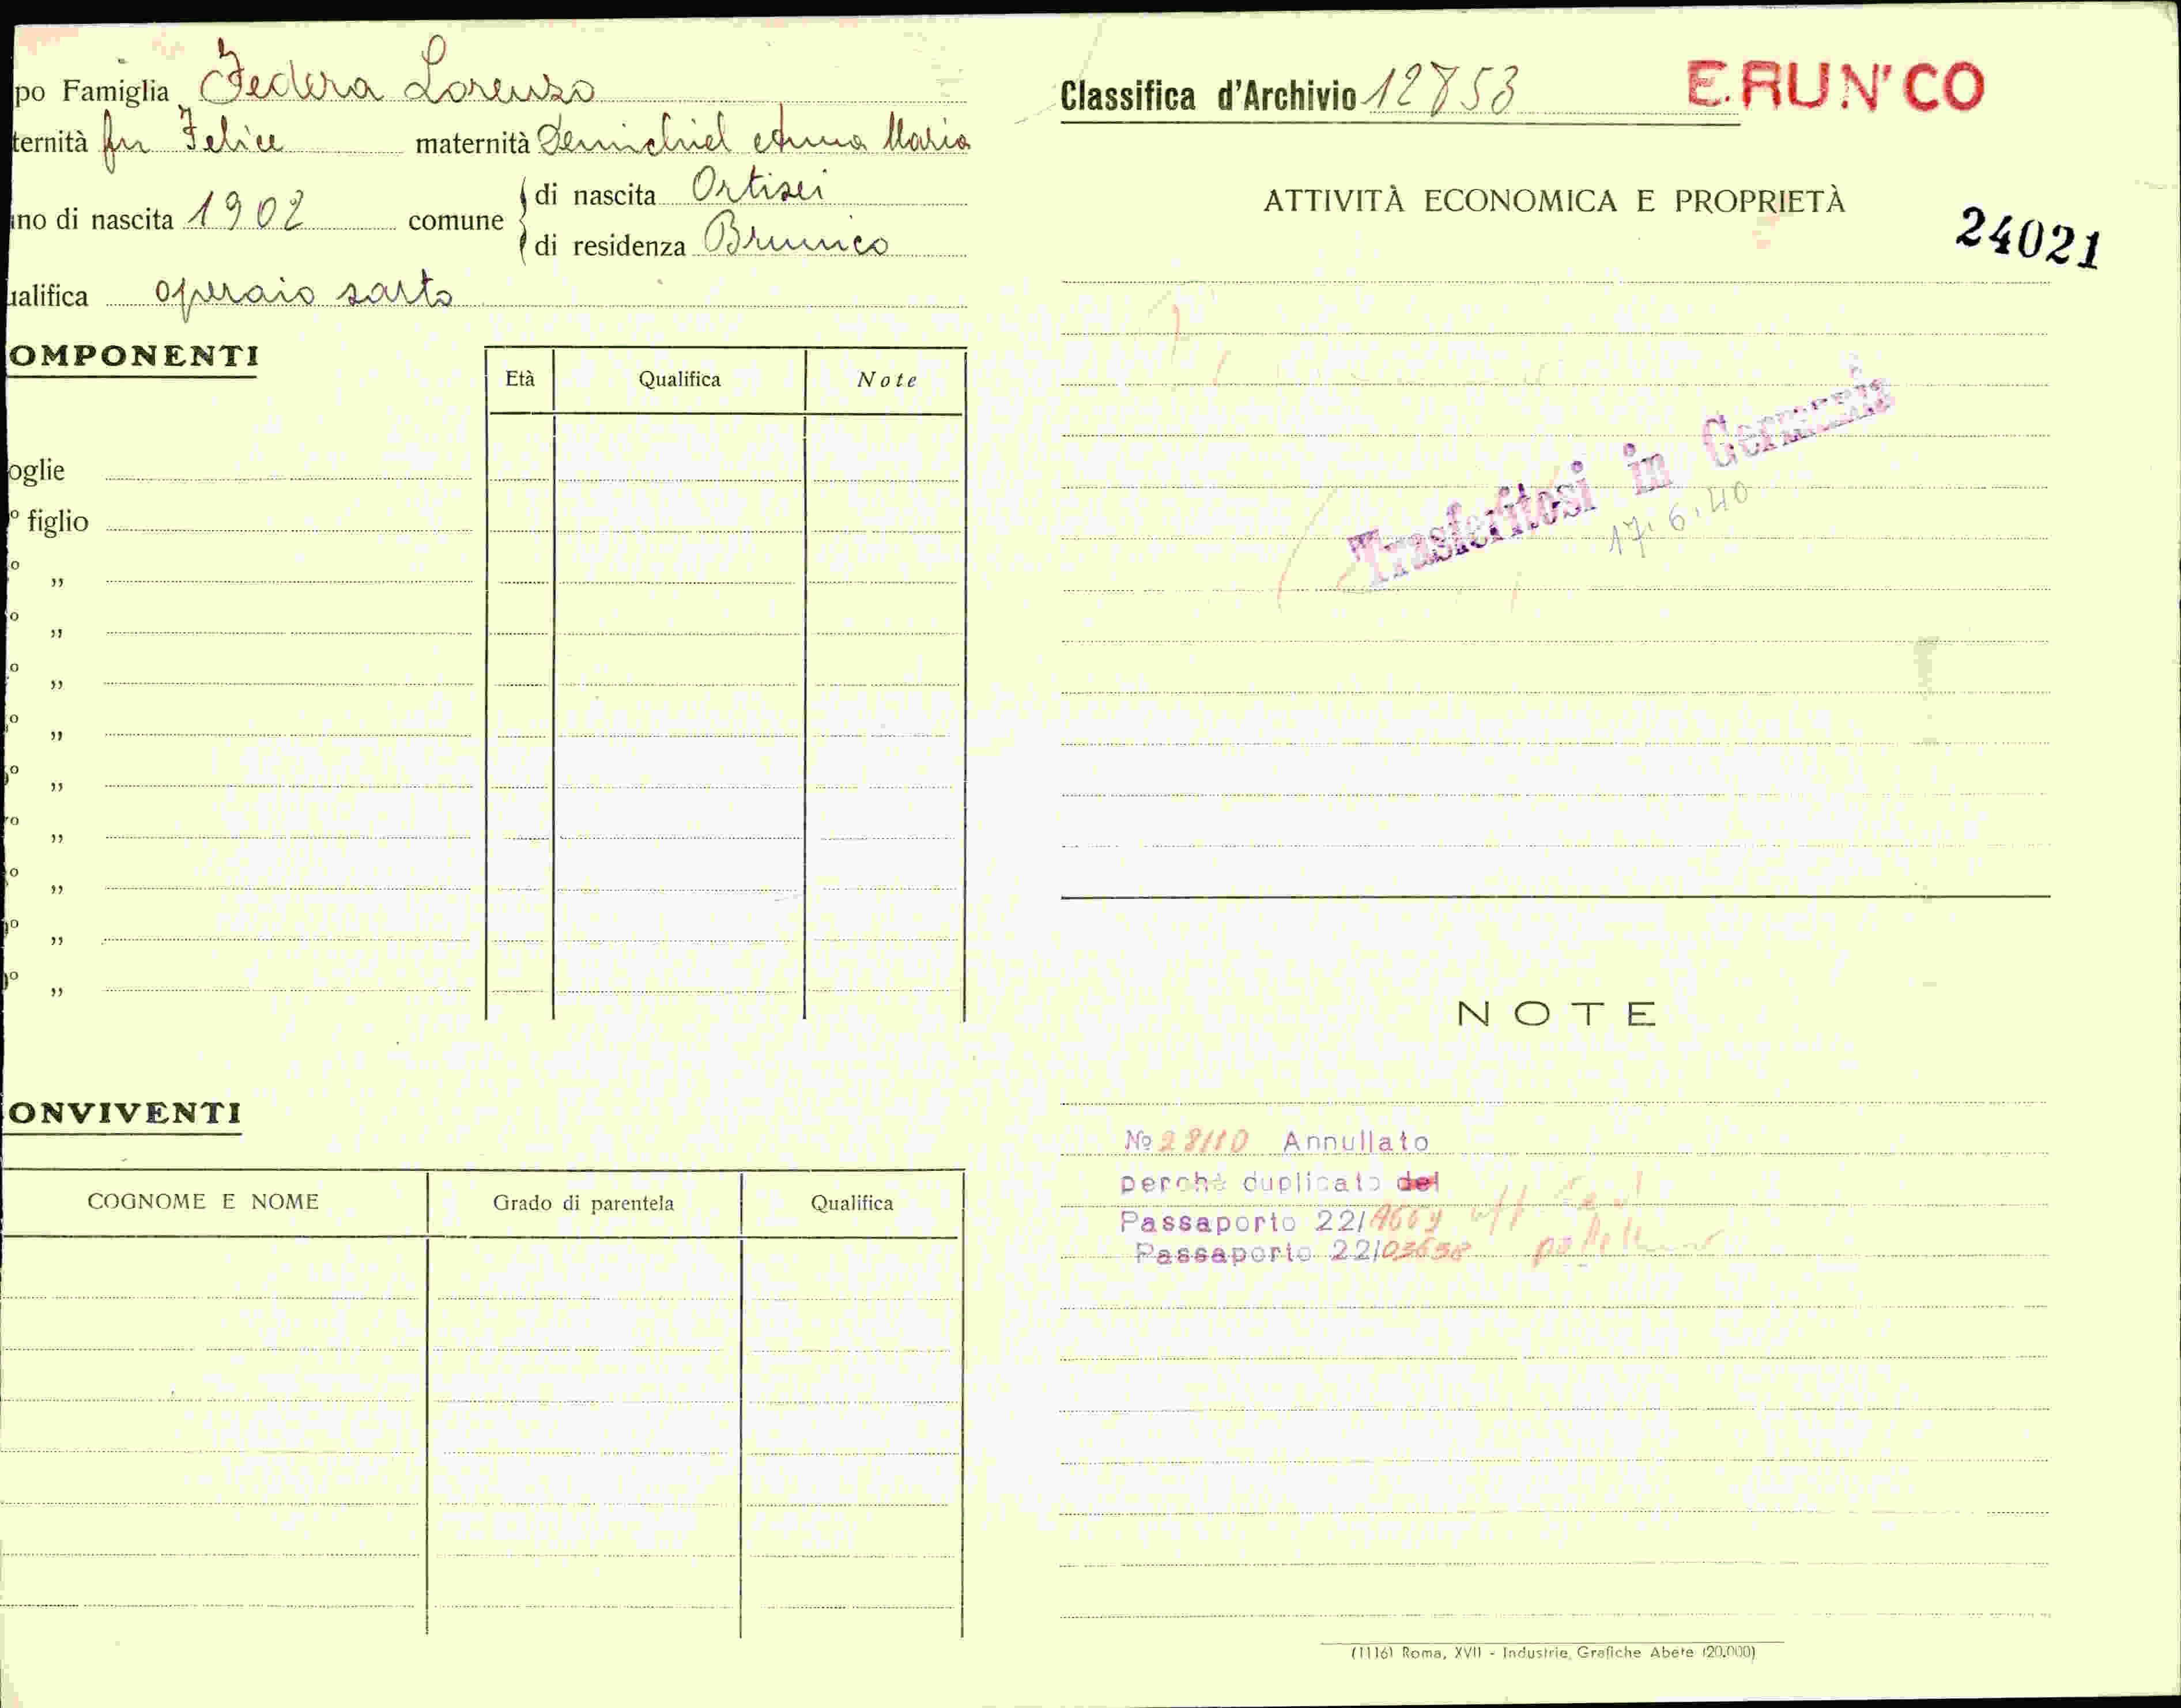 po Famiglia Federa Lorenzo
ternità fu Felice maternità Demichiel Anna Maria
no di nascita 1902 comune di nascita Ortisei
di residenza Brunico
alifica operaio sarto
OMPONENTI
Età Qualifica Note
oglie
º figlio
º „
º „
º „
º „
º „
º „
º „
º „
º „
ONVIVENTI
COGNOME E NOME Grado di parentela Qualifica
Classifica d'Archivio 12853
E.RUN'CO
ATTIVITÀ ECONOMICA E PROPRIETÀ
24021
Trasferitosi in Germania
17.6.40
NOTE
Nº 28110 Annullato
perchè duplicato del
Passaporto 22/
Passaporto 22/03638
(1116) Roma, XVII - Industrie Grafiche Abete (20.000)